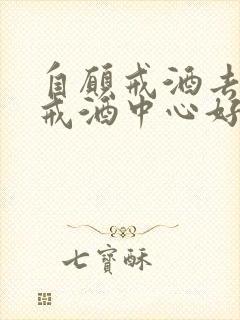 自願戒酒去
戒酒中心好
七寶酥